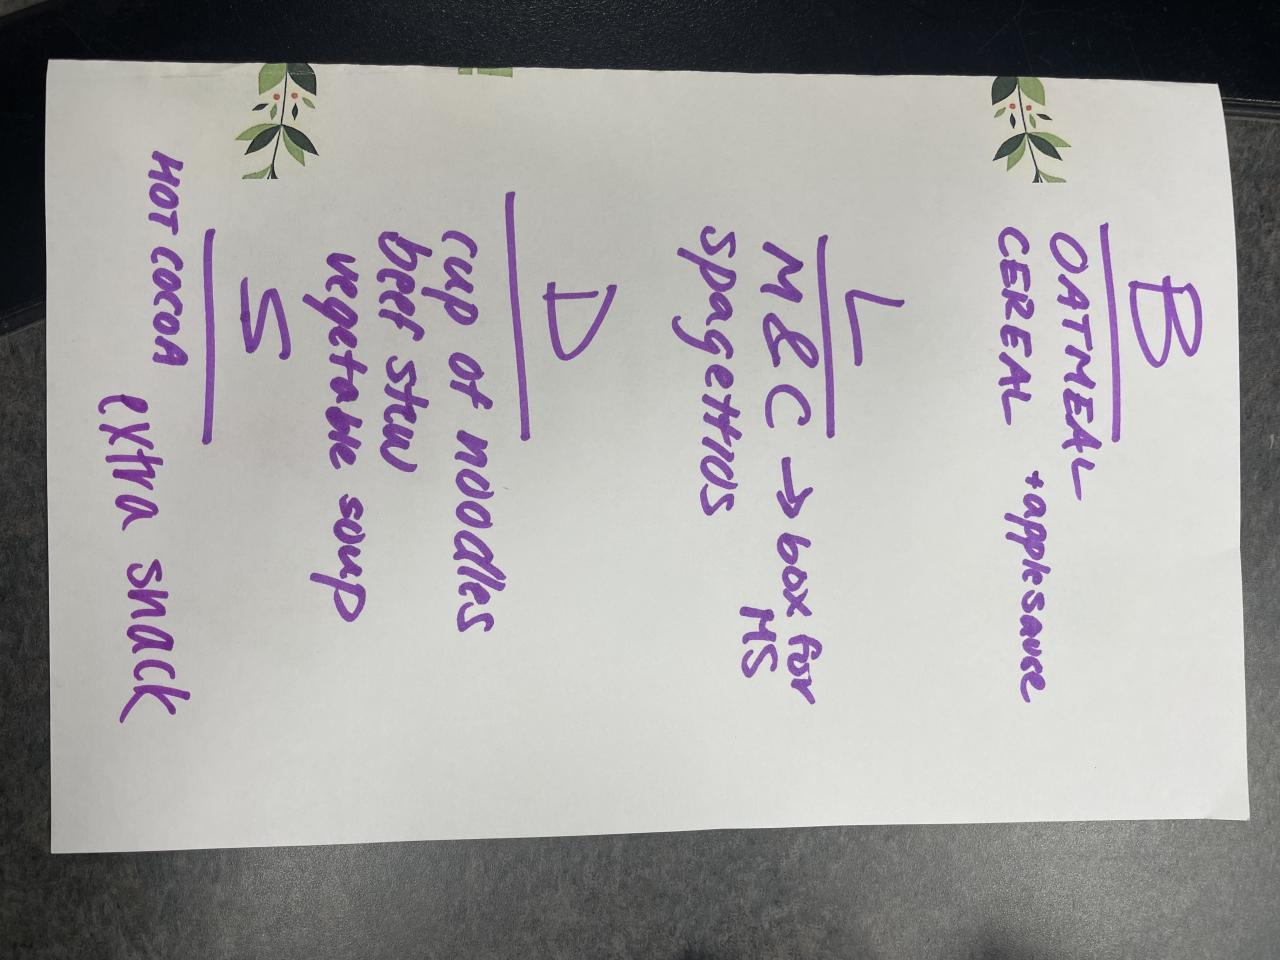 B
OATMEAL
CEREAL + applesause
L
M & C → box for
MS
spagettios
D
cup of noodles
beef stew
vegetable soup
S
HOT COCOA
extra snack